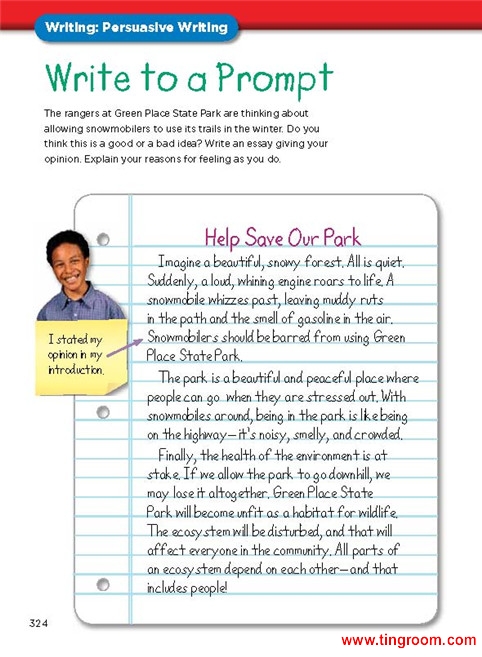 Writing: Persuasive Writing
Write to a Prompt
The rangers at Green Place State Park are thinking about
allowing snowmobilers to use its trails in the winter. Do you
think this is a good or a bad idea? Write an essay giving your
opinion. Explain your reasons for feeling as you do.
Help Save Our Park
Imagine a beautiful, snowy forest. All is quiet.
Suddenly, a loud, whining engine roars to life. A
snowmobile whizzes past, leaving muddy ruts
in the path and the smell of gasoline in the air.
Snowmobilers should be barred from using Green
Place State Park.
I stated my
opinion in my
introduction.
The park is a beautiful and peaceful place where
people can go when they are stressed out. With
snowmobiles around, being in the park is like being
on the highway—it's noisy, smelly, and crowded.
Finally, the health of the environment is at
stake. If we allow the park to go downhill, we
may lose it altogether. Green Place State
Park will become unfit as a habitat for wildlife.
The ecosystem will be disturbed, and that will
affect everyone in the community. All parts of
an ecosystem depend on each other—and that
includes people!
324
www.tingroom.com